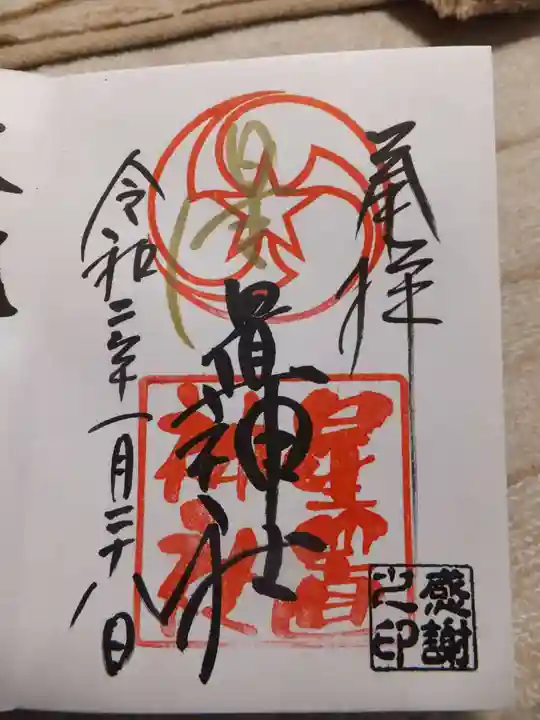 奉拝
星
星置神社
星置
神社
令和二年一月二十八日
感謝
之印